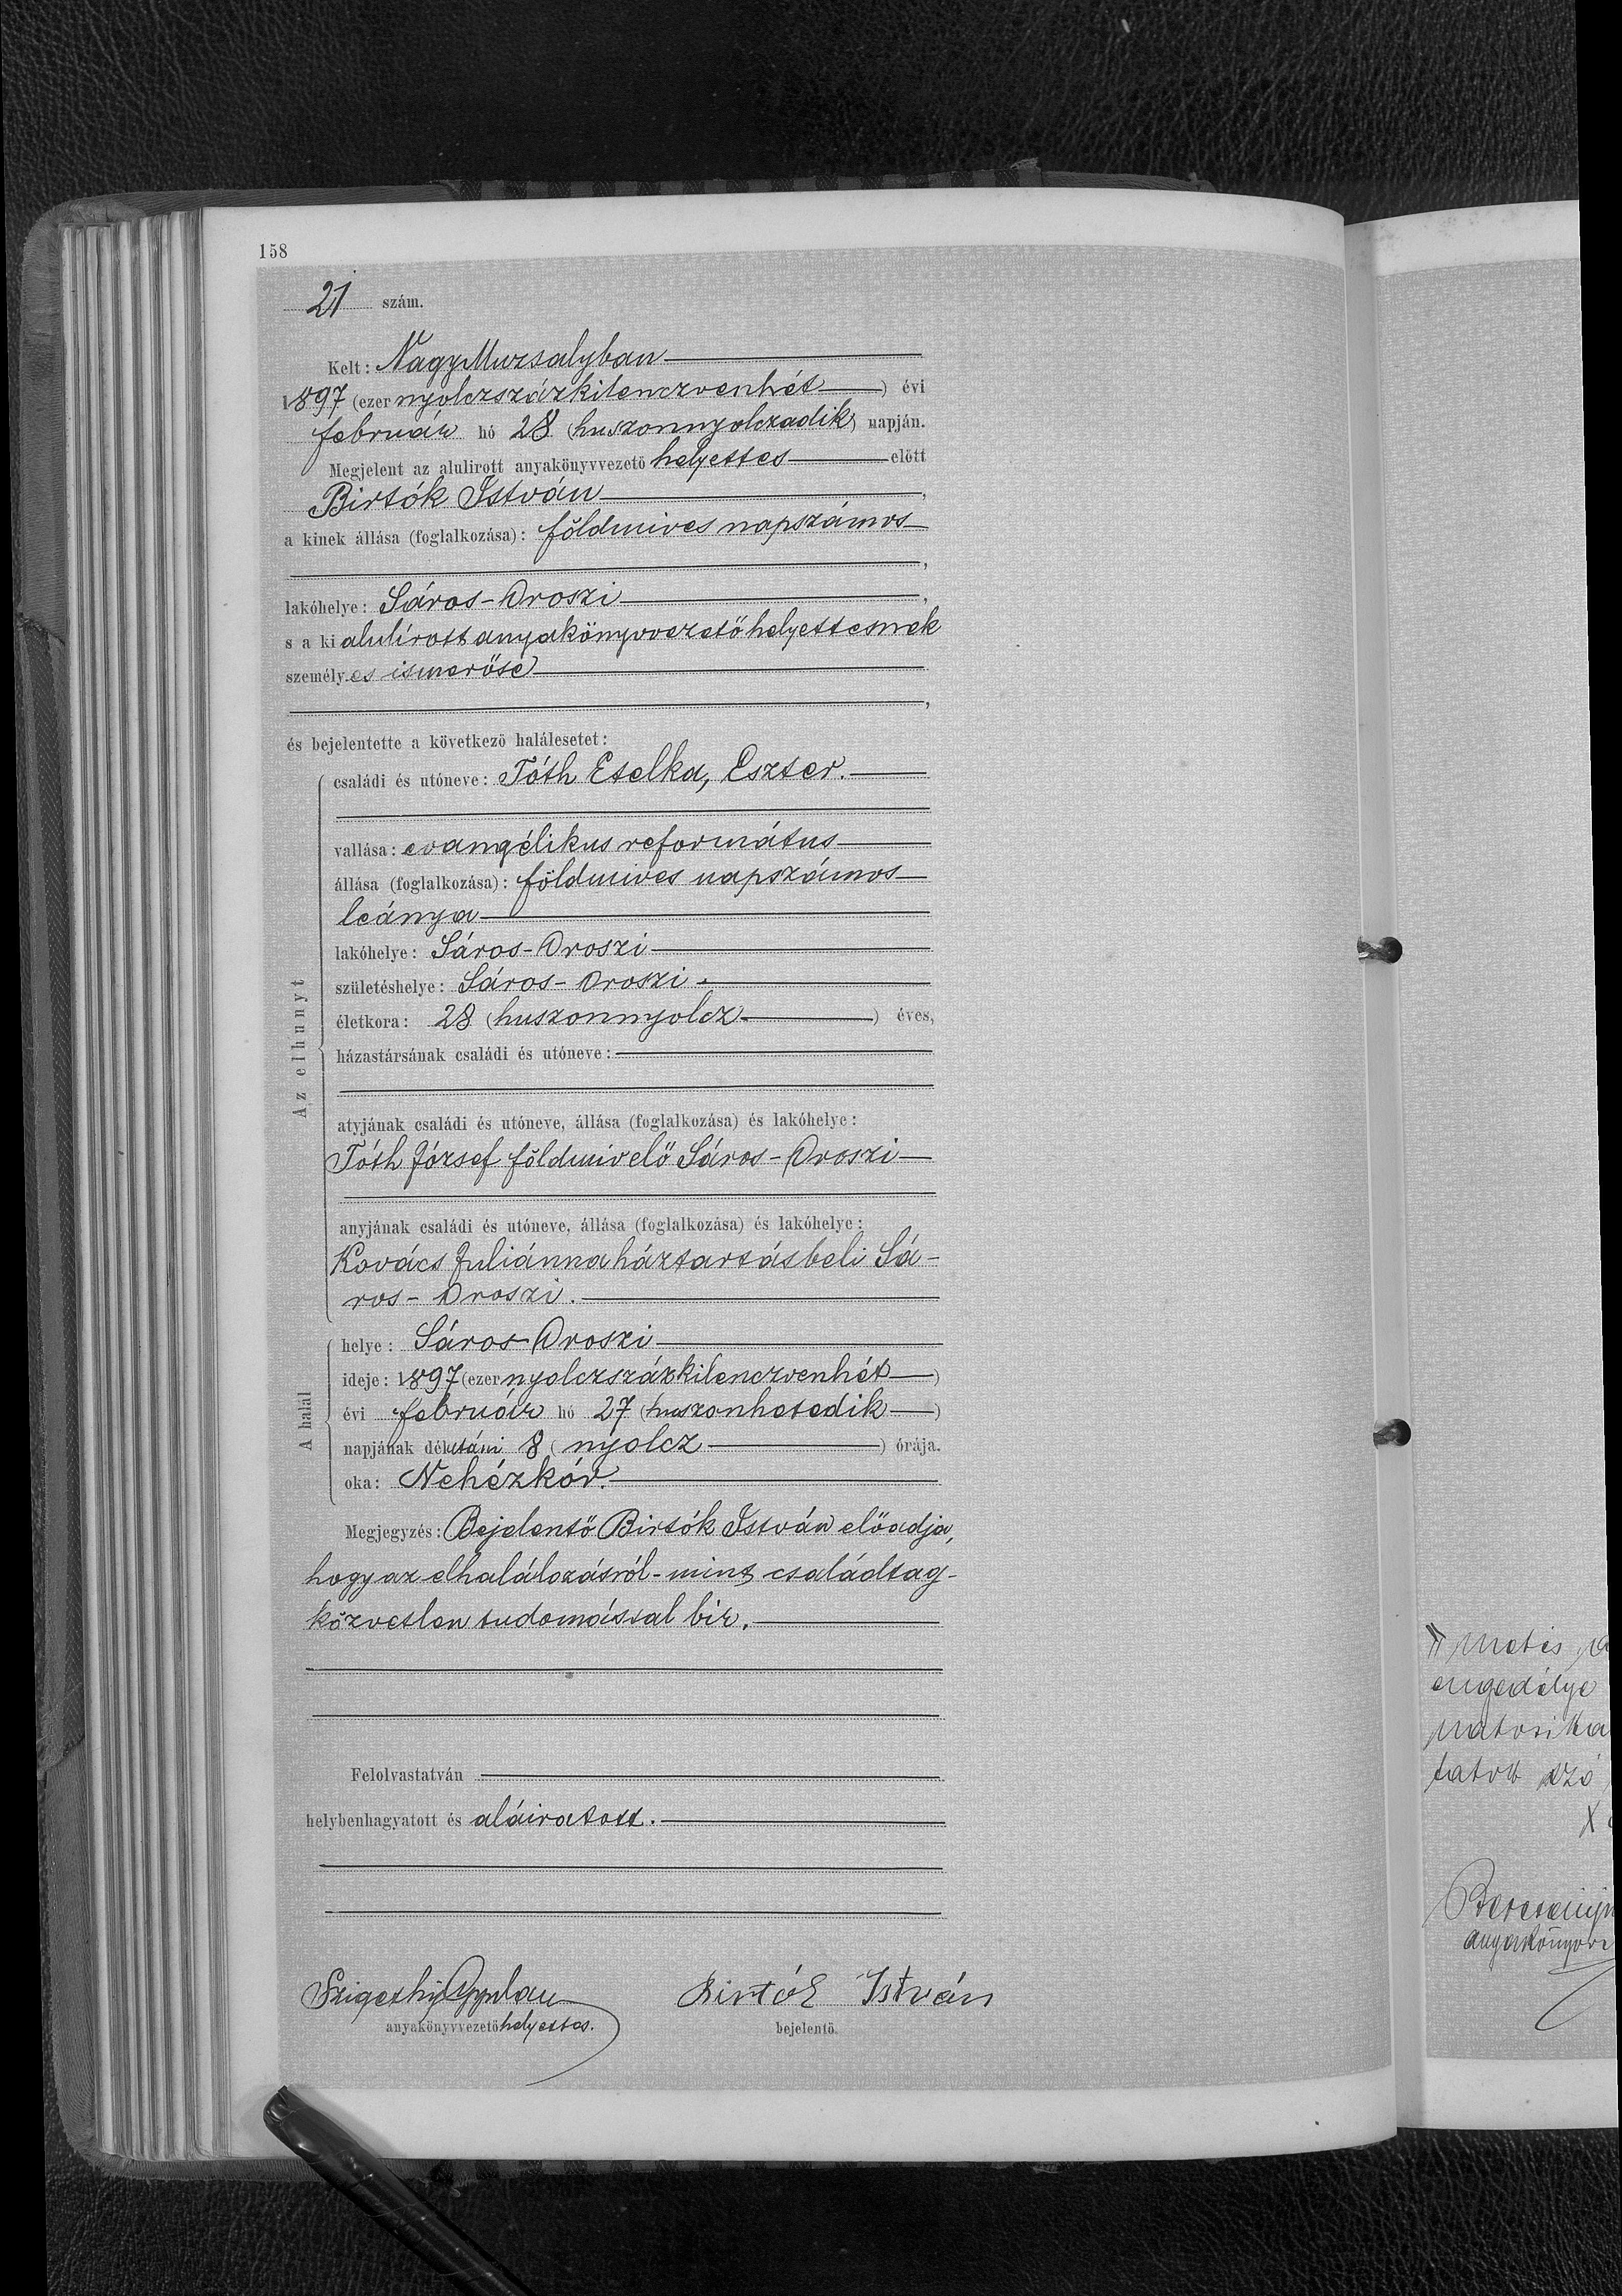 158
21 szám.
Kelt: NagyMuzsalyban
1897 (ezer nyolczszázkilenczvenhét) évi
február hó 28 (huszonnyolczadik) napján.
Megjelent az alulirott anyakönyvvezető helyettes előtt
Birtók István,
a kinek állása (foglalkozása): földmives napszámos
,
lakóhelye: Sáros-Oroszi,
s a ki alulírott anyakönyvvezetőhelyettesnek
személyes ismerőse
,
és bejelentette a következő halálesetet:
Az elhunyt
családi és utóneve: Tóth Etelka, Eszter.
vallása: evangélikus református
állása (foglalkozása): földmives napszámos
leánya
lakóhelye: Sáros-Oroszi
születéshelye: Sáros-Oroszi.
életkora: 28 (huszonnyolcz) éves,
házastársának családi és utóneve:
atyjának családi és utóneve, állása (foglalkozása) és lakóhelye:
Tóth József földmivelő Sáros-Oroszi
anyjának családi és utóneve, állása (foglalkozása) és lakóhelye:
Kovács Juliánna háztartásbeli Sá-
ros-Oroszi.
A halál
helye: Sáros-Oroszi
ideje: 1897 (ezer nyolczszázkilenczvenhét)
évi február hó 27 (huszonhetedik)
napjának délutáni 8 (nyolcz) órája.
oka: Nehézkór.
Megjegyzés: Bejelentő Birtók István előadja,
hogy az elhalálozásról - mint családtag -
közvetlen tudomással bir.
Felolvastatván
helybenhagyatott és aláiratott.
Birtók István
anyakönyvvezető helyettes.
bejelentő.
engedélye